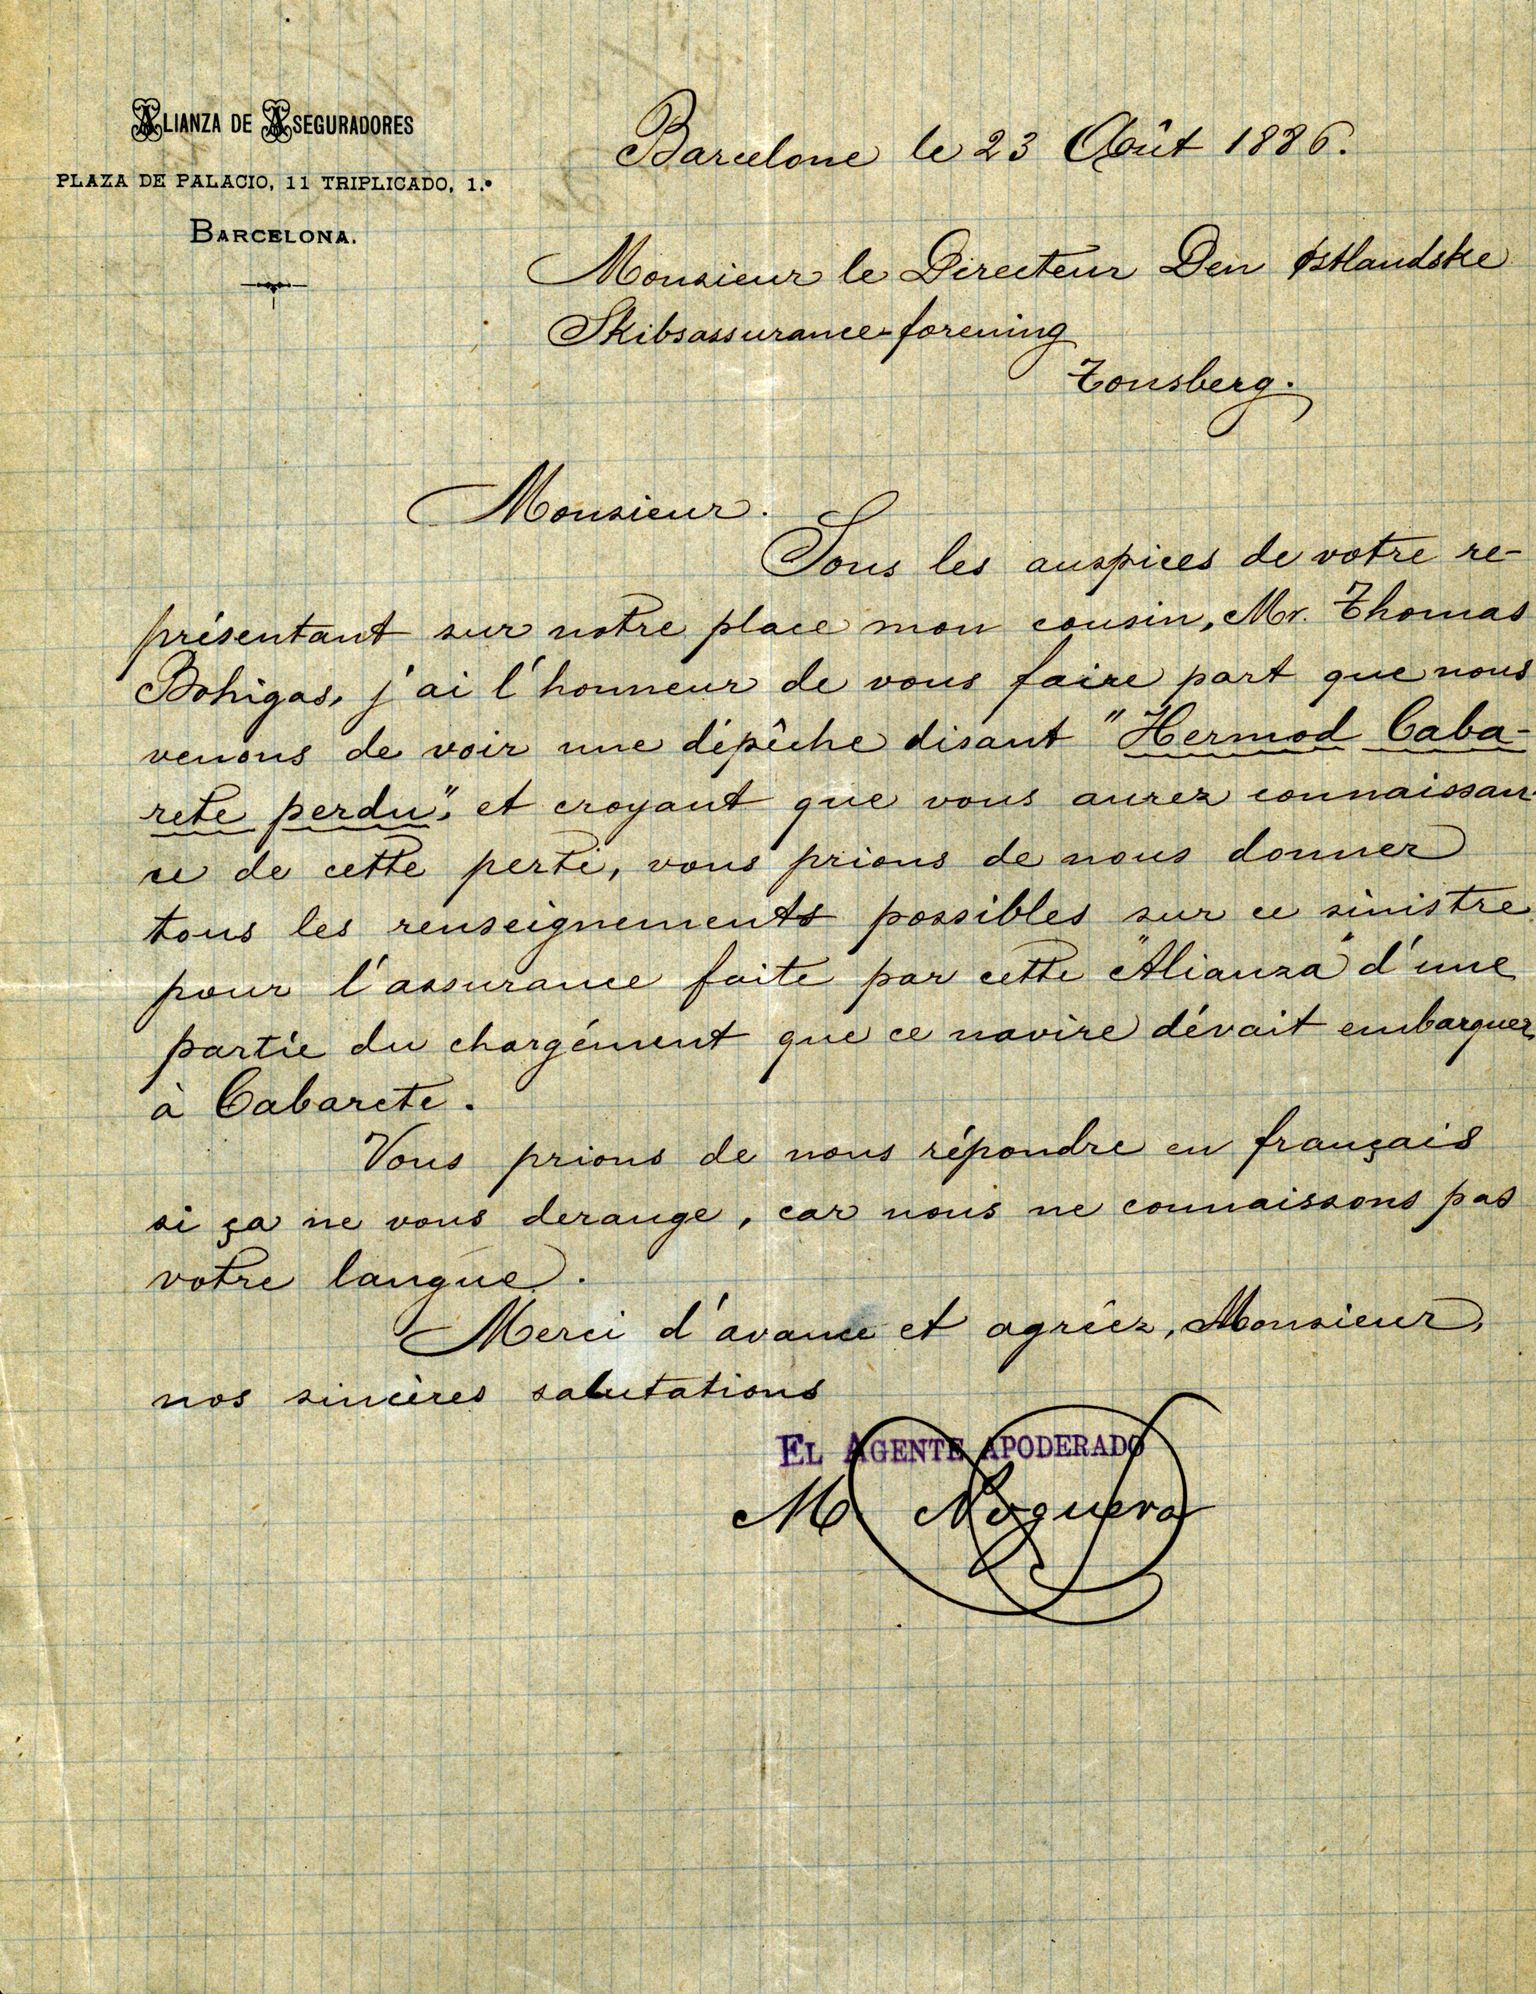 ALIANZA DE ASEGURADORES
PLAZA DE PALACIO, 11 TRIPLICADO, 1.º
BARCELONA.
Barcelone le 23 Août 1886.
Monsieur le Directeur Den Østlandske
Skibsassurance-forening
Tonsberg.
Monsieur.
Sous les auspices de votre re-
présentant sur notre place mon cousin, Mr. Thomas
Bohigas, j'ai l'honneur de vous faire part que nous
venons de voir une dépêche disant "Hermod Caba-
rete perdu", et croyant que vous aurez connaissan-
ce de cette perte, vous prions de nous donner
tous les renseignements possibles sur ce sinistre
pour l'assurance faite par cette "Alianza" d'une
partie du chargément que ce navire dévait embarquer
à Cabarete.
Vous prions de nous répondre en français
si ça ne vous derange, car nous ne connaissons pas
votre langue.
Merci d'avance et agréez, Monsieur,
nos sincères salutations
EL AGENTE APODERADO
M. Noguera